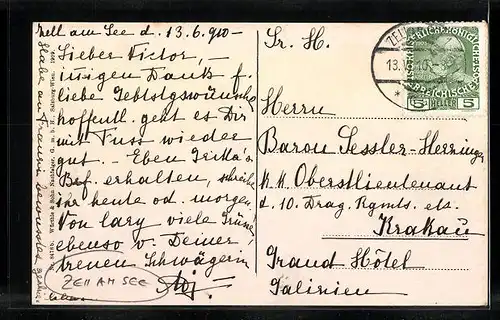 Zell am See d. 13.6.910
Lieber Victor, –
innigen Dank f.
liebe Gebtstgswünsche
hoffentl. geht es Dir
mit Fuss wieder
gut. – Eben Brf. erhalten, schreibe
ihr heute od. morgen.
Von Lary viele Grüsse
ebenso v. Deiner
treuen Schwägerin
ZELL AM SEE
Sr. H.
Herrn
Baron Sessler-Herzinger
k.k. Oberstlieutenant
d. 10. Drag. Rgmts. etz.
Krakau
Grand Hôtel
Galizien
Würthle & Sohn Nachfolger, G. m. b. H., Salzburg-Wien. 1909.
5 HELLER 5
ZELL
13.